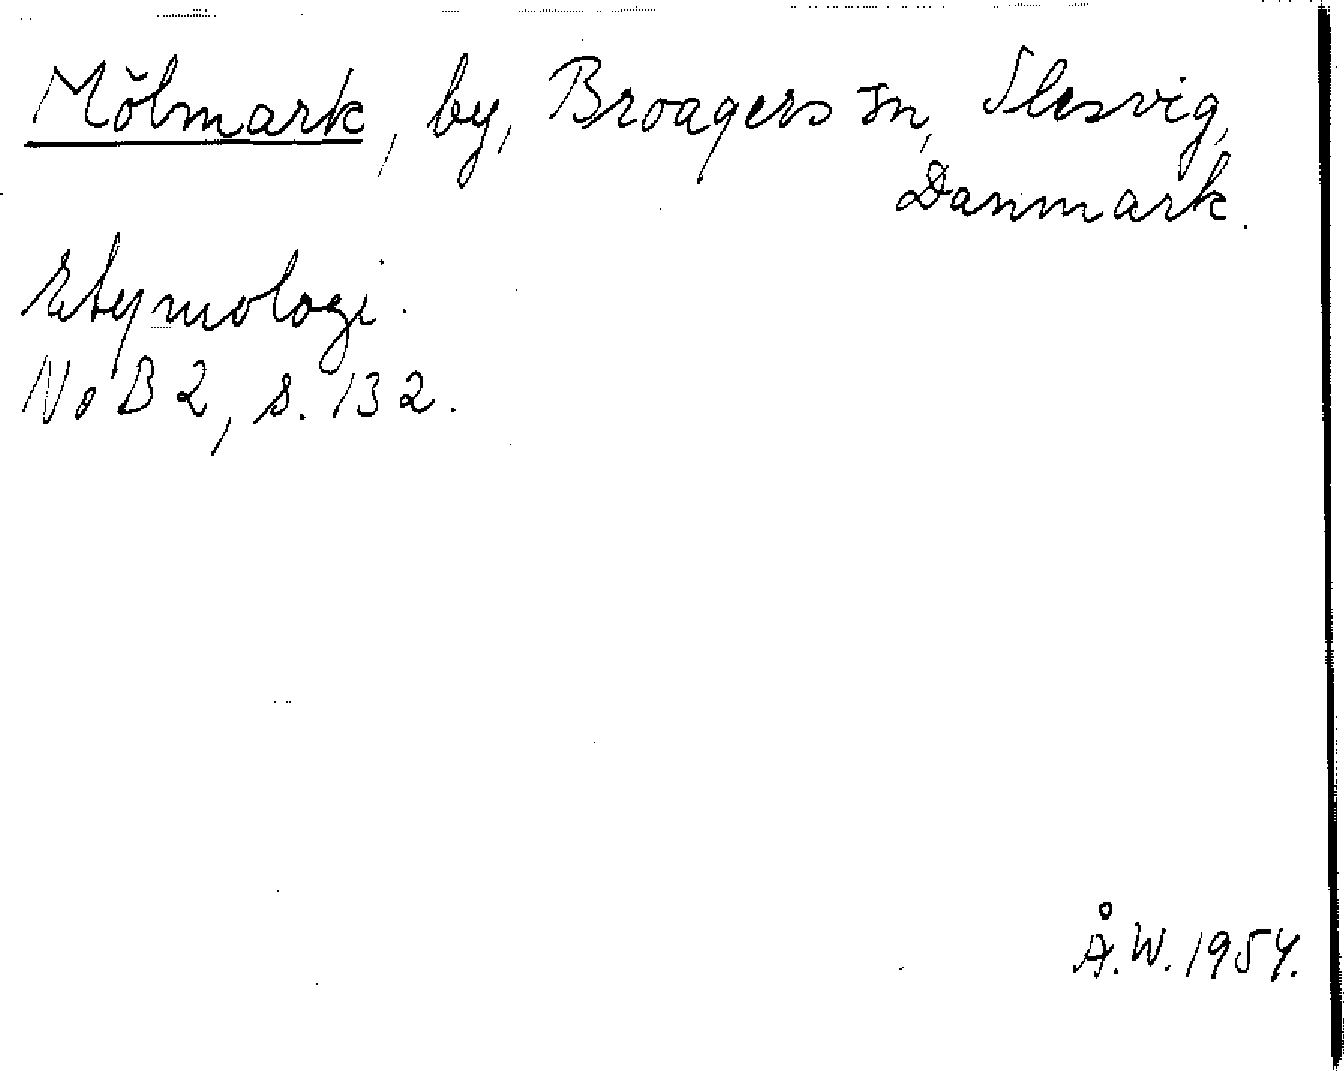 Mölmark, by, Broagers sn, Slesvig,
Danmark.
Etymologi.
NoB 2, s. 132.
Å.W. 1954.